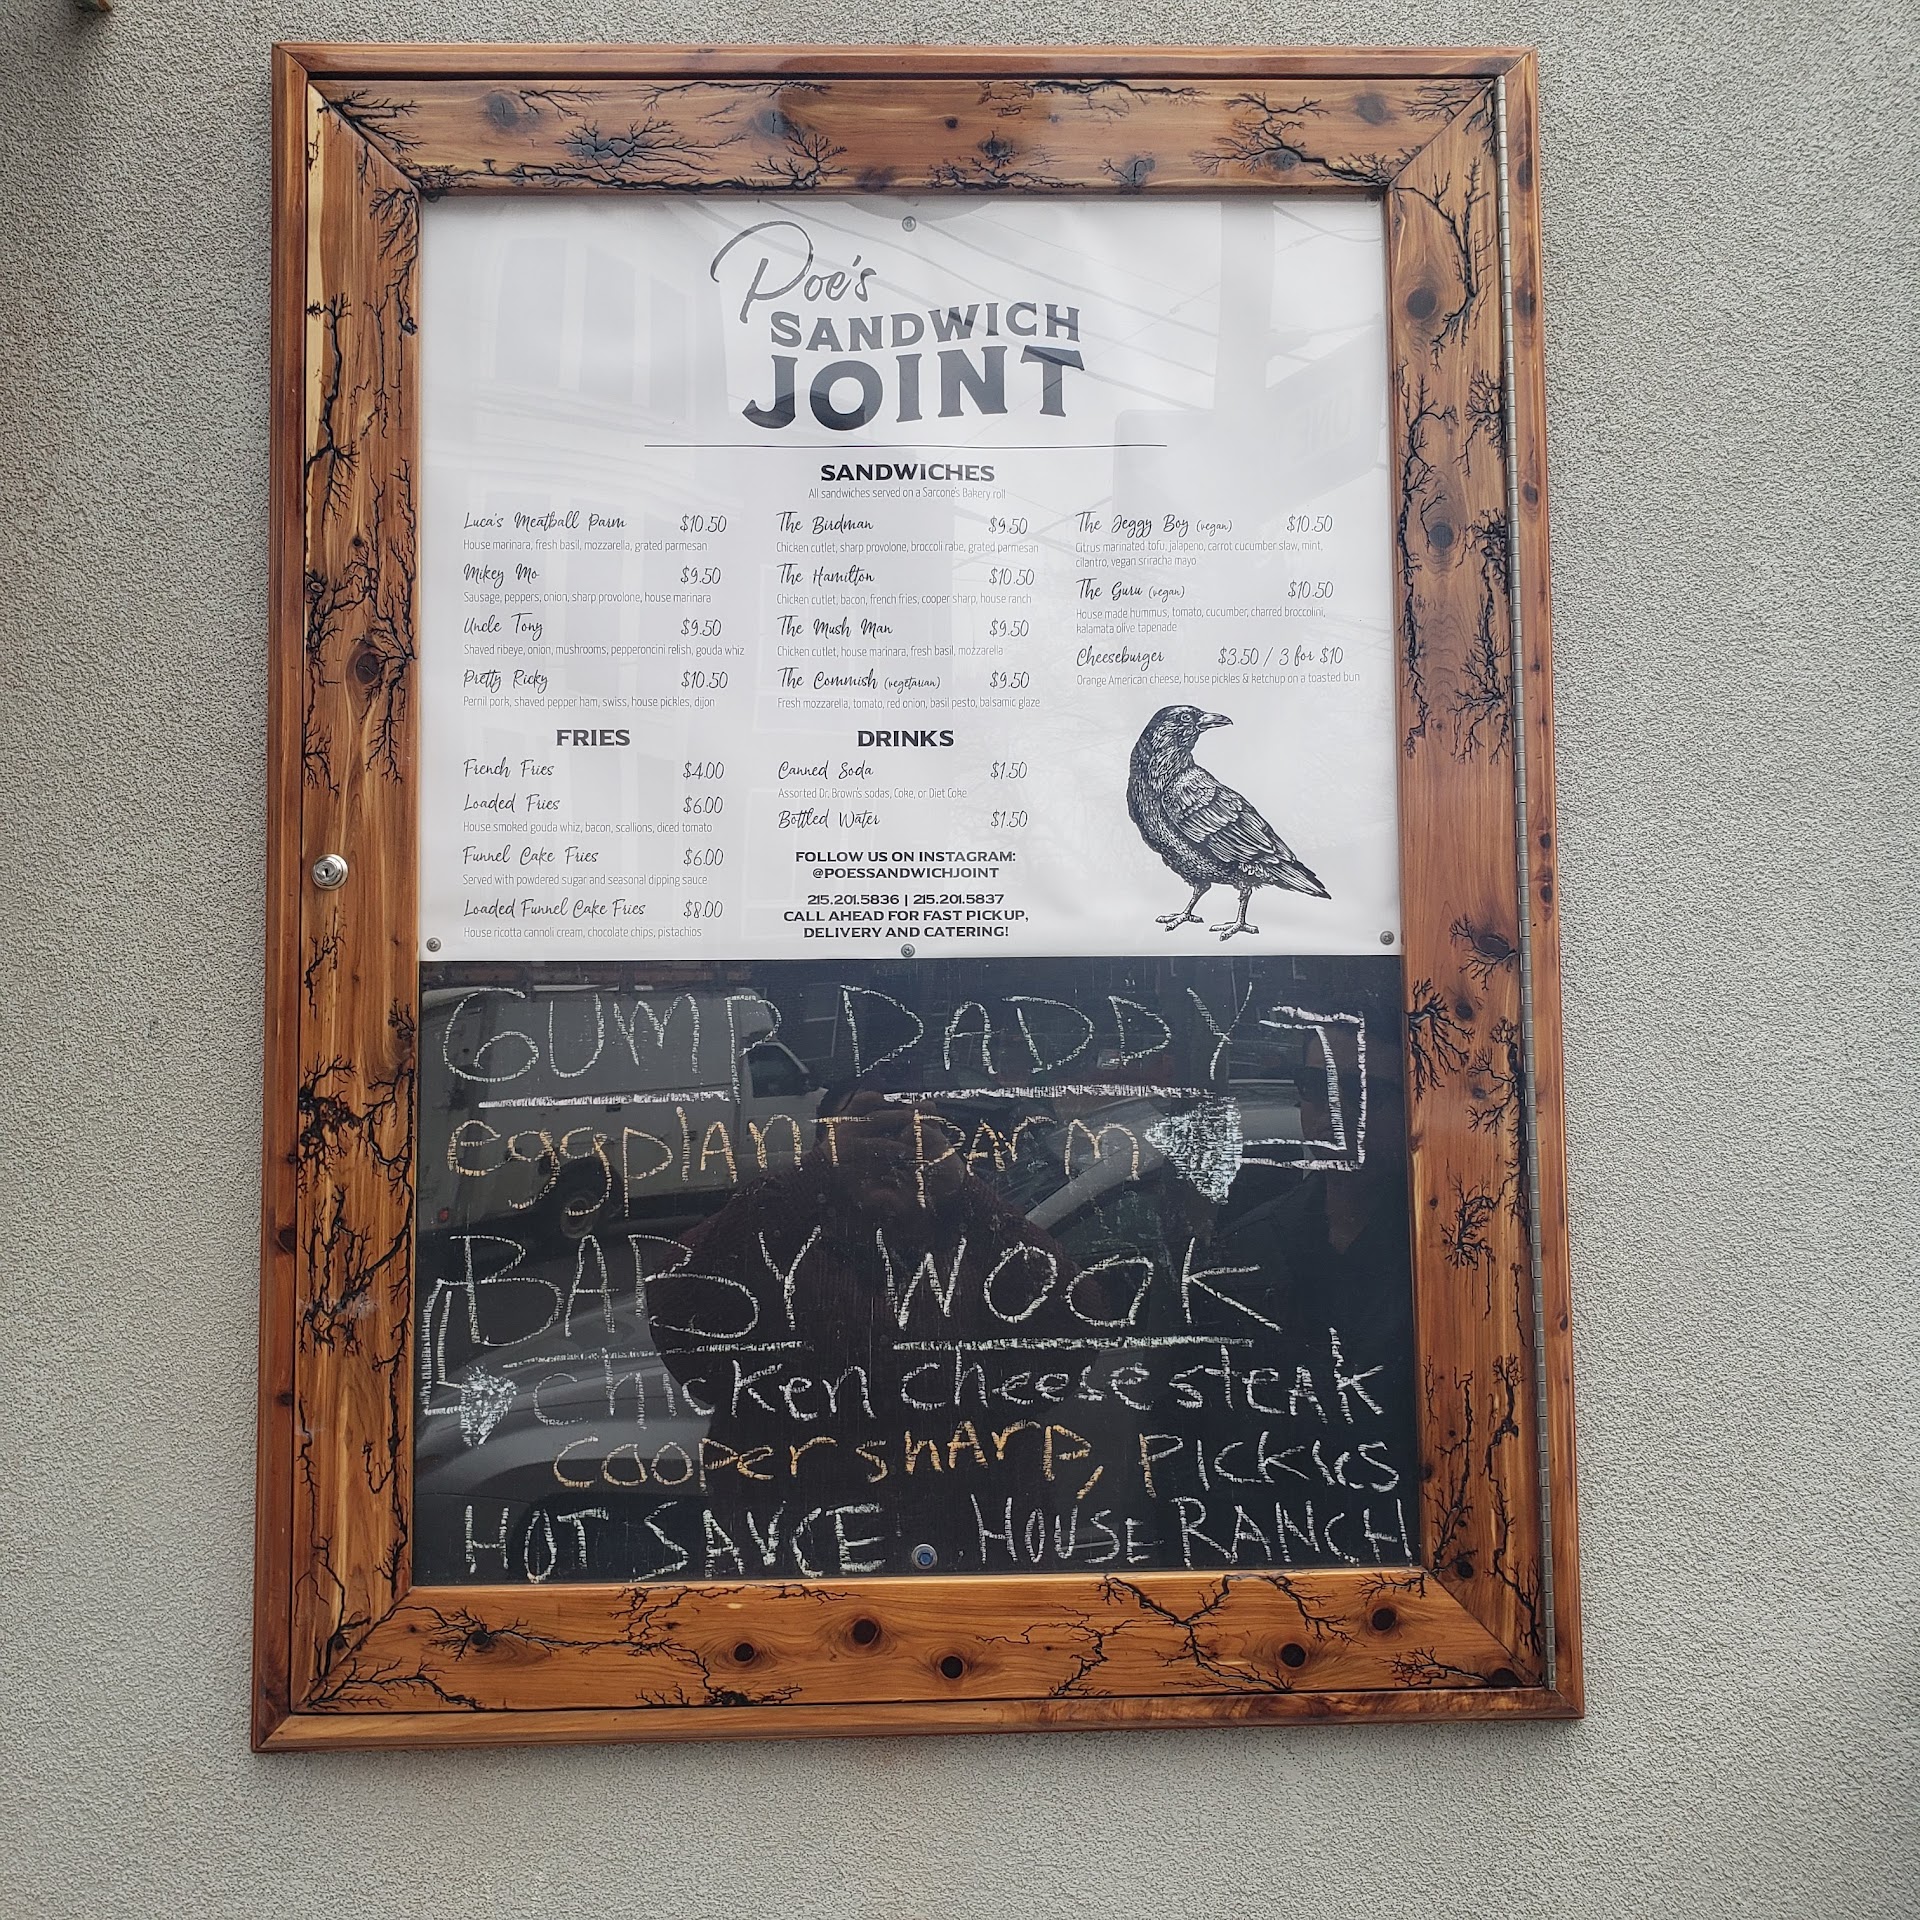 Poe's
SANDWICH
JOINT
SANDWICHES
All sandwiches served on a Sarcone's Bakery roll
Luca's Meatball Parm $10.50
House marinara, fresh basil, mozzarella, grated parmesan
Mikey Mo $9.50
Sausage, peppers, onion, sharp provolone, house marinara
Uncle Tony $9.50
Shaved ribeye, onion, mushrooms, pepperoncini relish, gouda whiz
Pretty Ricky $10.50
Pernil pork, shaved pepper ham, swiss, house pickles, dijon
The Birdman $9.50
Chicken cutlet, sharp provolone, broccoli rabe, grated parmesan
The Hamilton $10.50
Chicken cutlet, bacon, french fries, cooper sharp, house ranch
The Mush Man $9.50
Chicken cutlet, house marinara, fresh basil, mozzarella
The Commish (vegetarian) $9.50
Fresh mozzarella, tomato, red onion, basil pesto, balsamic glaze
The Jeggy Boy (vegan) $10.50
Citrus marinated tofu, jalapeno, carrot cucumber slaw, mint,
cilantro, vegan sriracha mayo
The Guru (vegan) $10.50
House made hummus, tomato, cucumber, charred broccolini,
kalamata olive tapenade
Cheeseburger $3.50 / 3 for $10
Orange American cheese, house pickles & ketchup on a toasted bun
FRIES
French Fries $4.00
Loaded Fries $6.00
House smoked gouda whiz, bacon, scallions, diced tomato
Funnel Cake Fries $6.00
Served with powdered sugar and seasonal dipping sauce
Loaded Funnel Cake Fries $8.00
House ricotta cannoli cream, chocolate chips, pistachios
DRINKS
Canned Soda $1.50
Assorted Dr. Brown's sodas, Coke, or Diet Coke
Bottled Water $1.50
FOLLOW US ON INSTAGRAM:
@POESSANDWICHJOINT
215.201.5836 | 215.201.5837
CALL AHEAD FOR FAST PICKUP,
DELIVERY AND CATERING!
GUMP DADDY
eggplant parm
BABY WOOK
chicken cheesesteak
cooper sharp, pickles
HOT SAUCE HOUSE RANCH